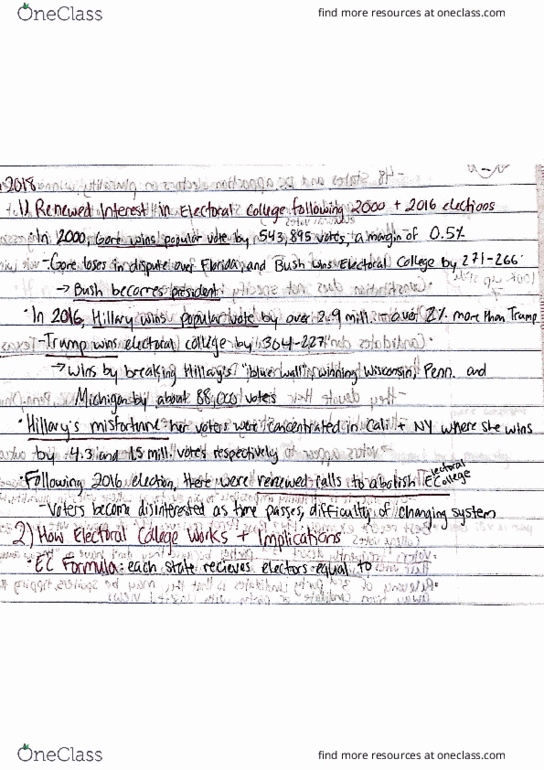 OneClass
find more resources at oneclass.com
2018
1) Renewed Interest in Electoral College following 2000 + 2016 elections
• In 2000, Gore wins popular vote by 543,895 votes, a margin of 0.5%
- Gore loses in dispute over Florida, and Bush wins Electoral College by 271-266
→ Bush becomes president
• In 2016, Hillary wins popular vote by over 2.9 mill. - over 2% more than Trump
- Trump wins electoral college by 304-227
→ wins by breaking Hillary's "blue wall" winning Wisconsin, Penn. and
Michigan by about 88,000 voters
• Hillary's misfortune her voters were concentrated in Cali + NY where she wins
by 4.3 and 1.5 mill. votes respectively
• Following 2016 election, there were renewed calls to abolish Electoral College
- Voters become disinterested as time passes, difficulty of changing system
2) How Electoral College Works + Implications
• EC Formula: each state recieves electors equal to
OneClass
find more resources at oneclass.com